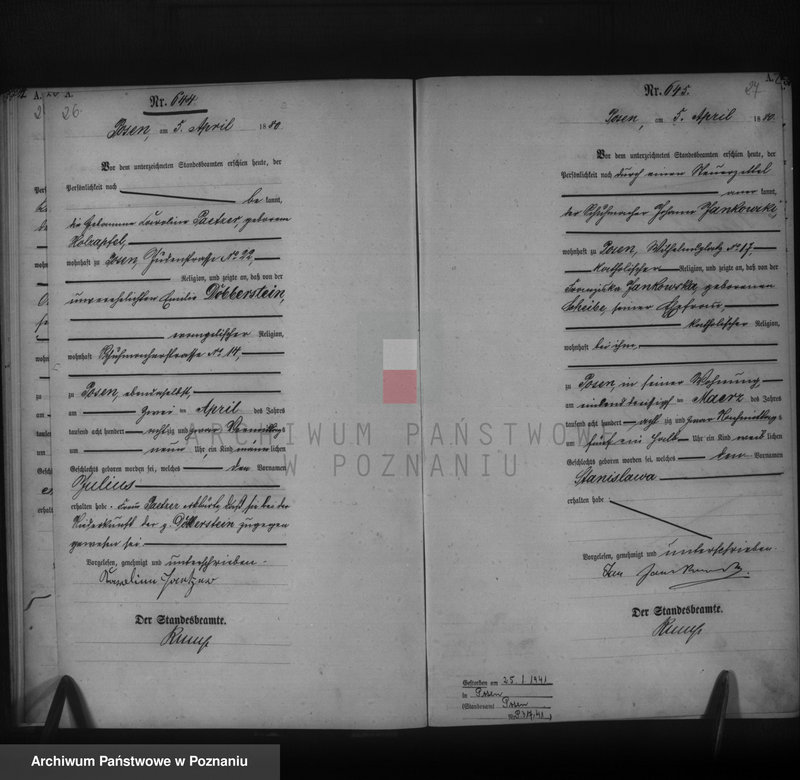 A.
26.
Nr. 644.
Posen, am 5. April 1880.
Vor dem unterzeichneten Standesbeamten erschien heute, der
Persönlichkeit nach
be kannt,
die Hebamme Caroline Paetzer, geborene
Holzapfel,
wohnhaft zu Posen, Judenstrasse No 22,
Religion, und zeigte an, daß von der
unverehelichten Emilie Döbberstein,
evangelischer Religion,
wohnhaft Schuhmacherstrasse No. 14,
zu Posen, ebendaselbst,
am zwei ten April des Jahres
tausend acht hundert achtzig und zwar Vormittags
um neun Uhr, ein Kind männlichen
Geschlechts geboren worden sei, welches den Vornamen
Julius
erhalten habe. Frau Paetzer erklärte, daß sie bei der
Niederkunft der p. Döbberstein zugegen
gewesen sei
Vorgelesen, genehmigt und unterschrieben.
Der Standesbeamte.
A.
27
Nr. 645.
Posen, am 5. April 1880.
Vor dem unterzeichneten Standesbeamten erschien heute, der
Persönlichkeit nach durch einen Steuerzettel
aner kannt,
der Schuhmacher Johann Jankowski,
wohnhaft zu Posen, Wilhelmsplatz No. 17,
katholischer Religion, und zeigte an, daß von der
Franziska Jankowska, geborenen
Scheibe, seiner Ehefrau,
katholischer Religion,
wohnhaft bei ihm,
zu Posen, in seiner Wohnung
am einunddreißigsten Maerz des Jahres
tausend acht hundert acht zig und zwar Nachmittags
um fünf ein halb Uhr ein Kind weib lichen
Geschlechts geboren worden sei, welches den Vornamen
Stanislawa
erhalten habe
Vorgelesen, genehmigt und unterschrieben.
Der Standesbeamte.
Gestorben am 25.1.1941
in Posen
(Standesamt Posen
ARCHIWUM PAŃSTWOWE
W POZNANIU
Archiwum Państwowe w Poznaniu